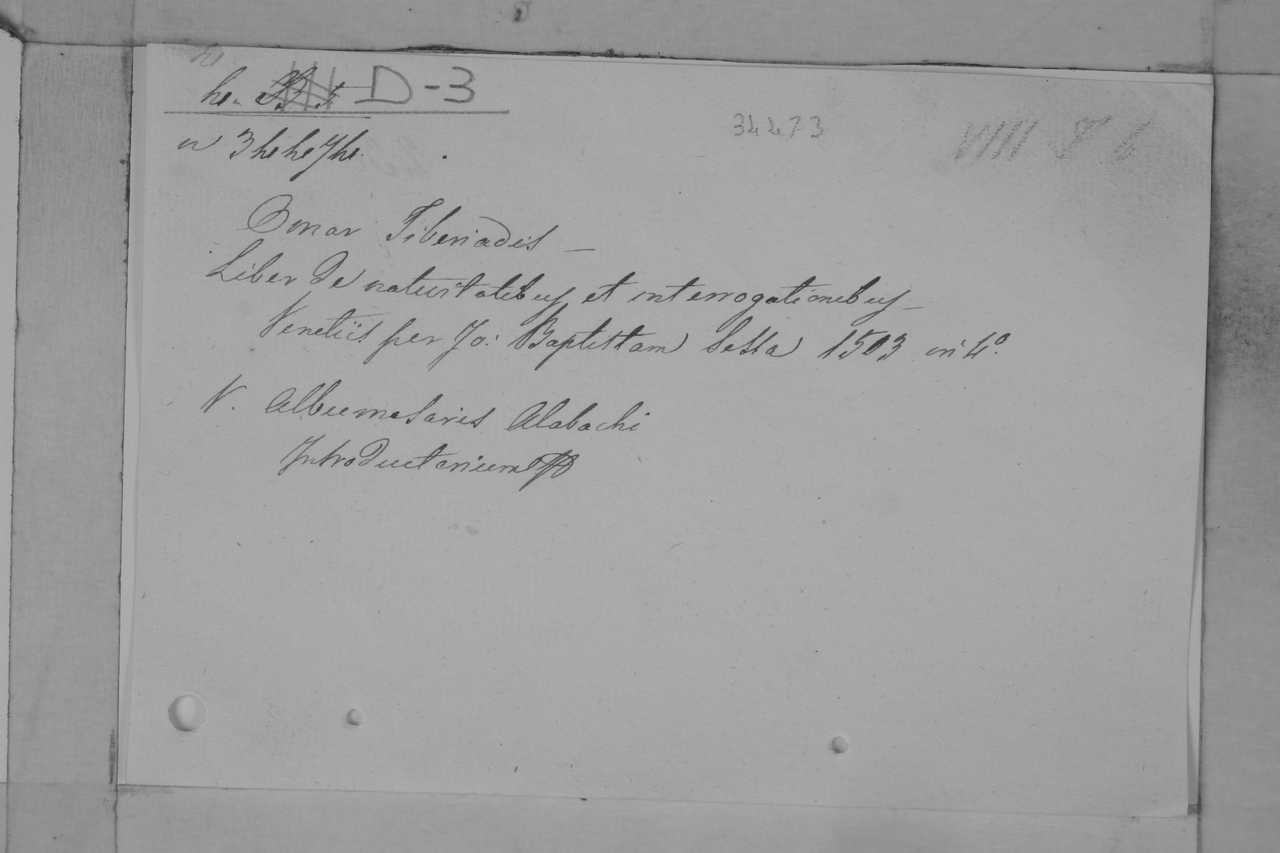 he. D-3
34473
VIII 8 6
Omar Tiberiadis —
Liber De nativitatibus et interrogationibus —
Venetiis per Jo: Baptistam Sessa 1503 in 4°.
V. Albumasaris Alabachi
Introductorium